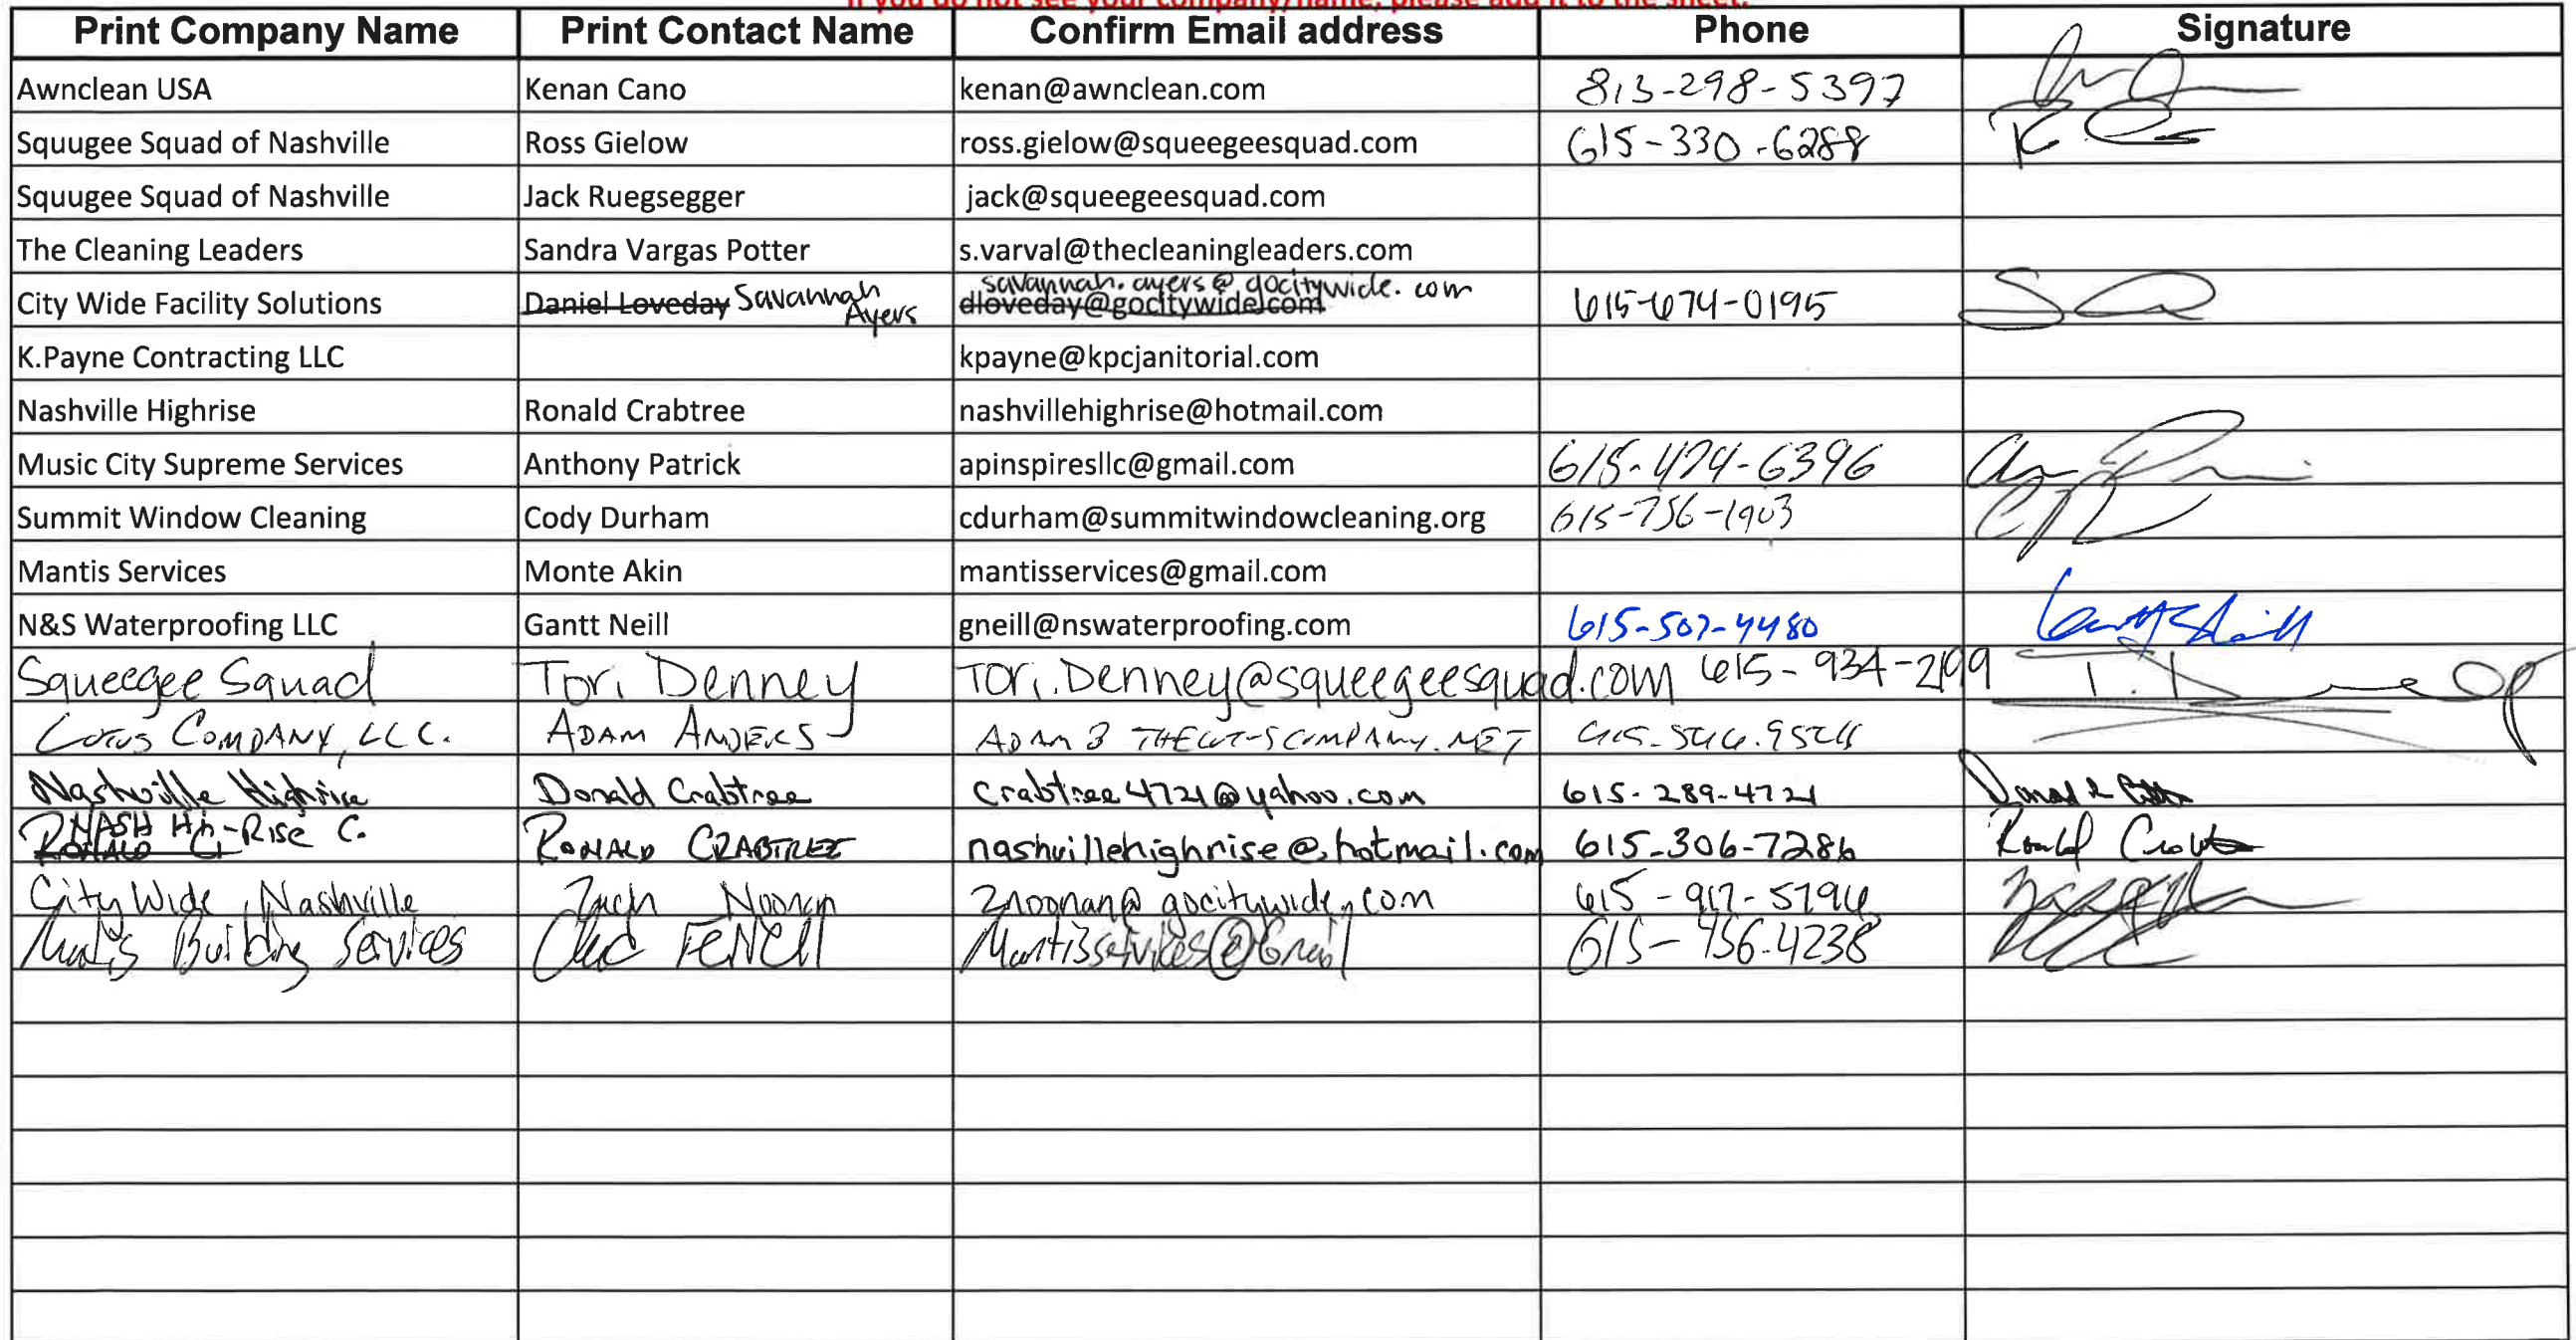 If you do not see your company/name, please add it to the sheet.
Print Company Name Print Contact Name Confirm Email address Phone Signature
Awnclean USA Kenan Cano kenan@awnclean.com 813-298-5397
Squugee Squad of Nashville Ross Gielow ross.gielow@squeegeesquad.com 615-330-6288
Squugee Squad of Nashville Jack Ruegsegger jack@squeegeesquad.com
The Cleaning Leaders Sandra Vargas Potter s.varval@thecleaningleaders.com
savannah.ayers@gocitywide.com
City Wide Facility Solutions Daniel Loveday Savannah Ayers dloveday@gocitywide.com 615-674-0195
K.Payne Contracting LLC kpayne@kpcjanitorial.com
Nashville Highrise Ronald Crabtree nashvillehighrise@hotmail.com
Music City Supreme Services Anthony Patrick apinspiresllc@gmail.com 615-474-6396
Summit Window Cleaning Cody Durham cdurham@summitwindowcleaning.org 615-756-1903
Mantis Services Monte Akin mantisservices@gmail.com
N&S Waterproofing LLC Gantt Neill gneill@nswaterproofing.com 615-507-4480
Squeegee Squad Tori Denney Tori.Denney@squeegeesquad.com 615-934-2199
Company, LLC. Adam Anders
Nashville Highrise Donald Crabtree crabtree4721@yahoo.com 615-289-4721
NASH Hi-Rise C.
Ronald Ronald Crabtree nashvillehighrise@hotmail.com 615-306-7286 Ronald
City Wide Nashville Zach Noonan znoonan@gocitywide.com
Building Services Mantisservices@Gmail 615-456-4238